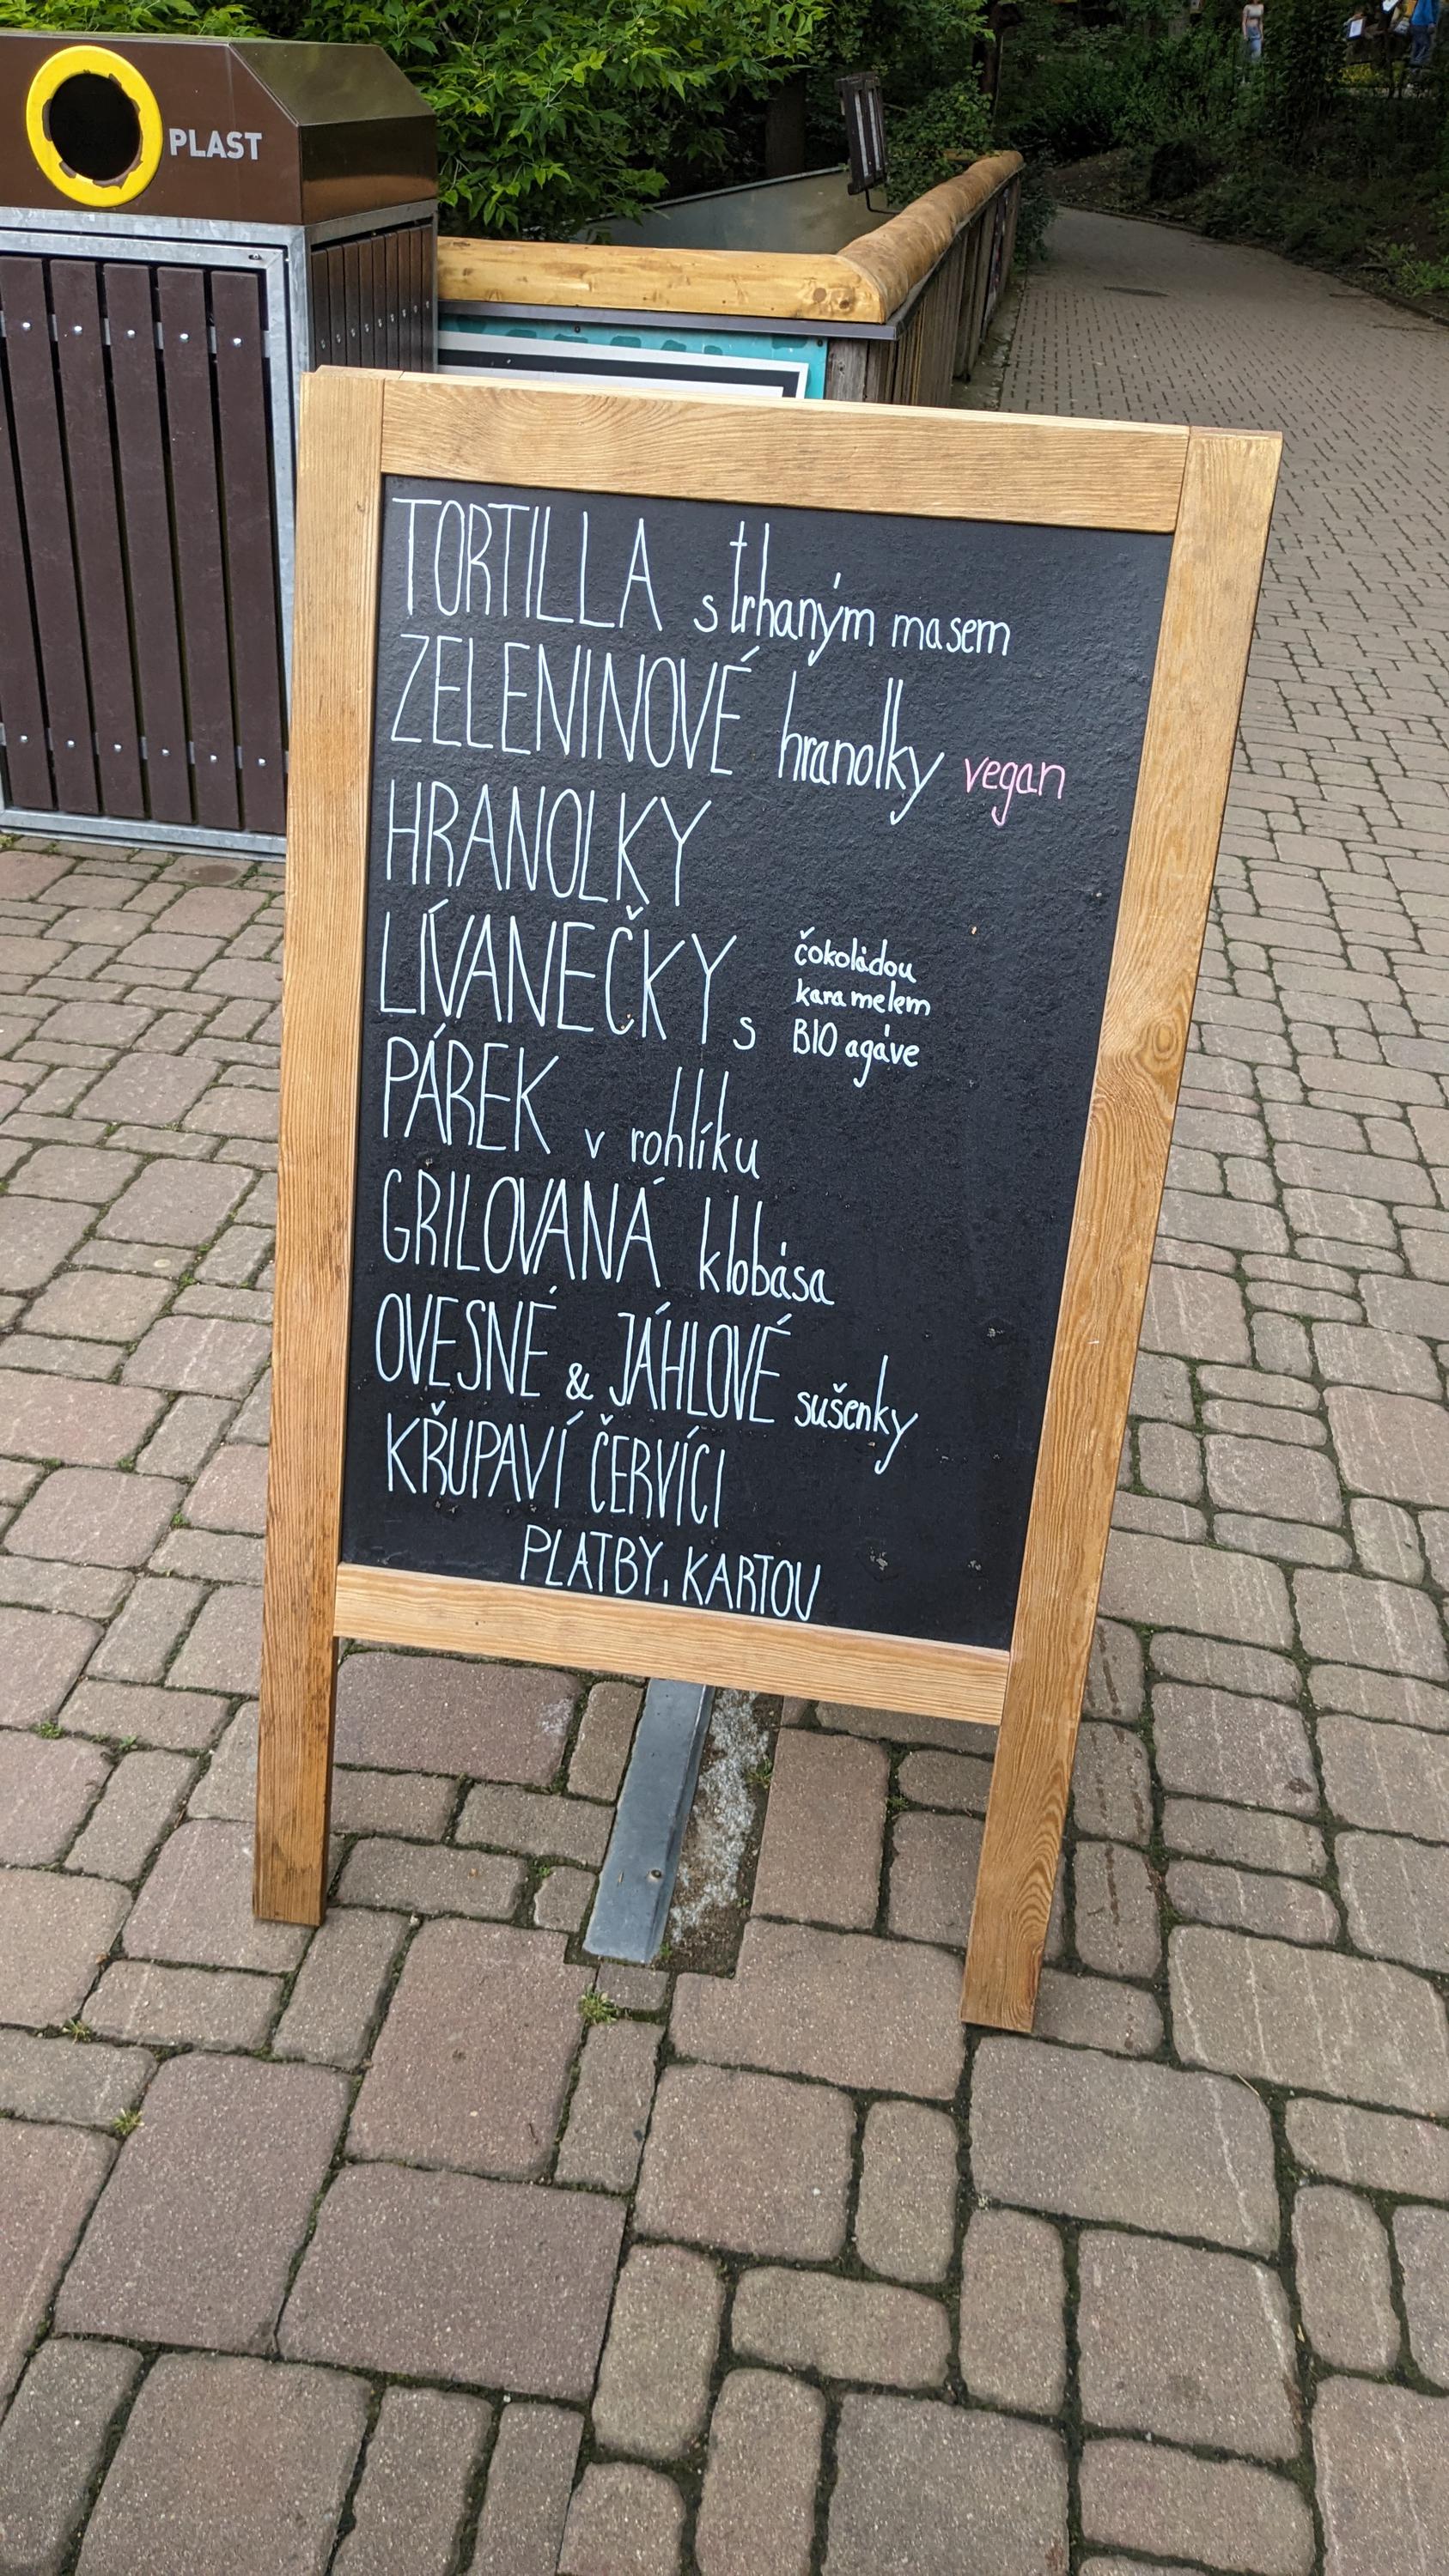 PLAST
TORTILLA s trhaným masem
ZELENINOVÉ hranolky vegan
HRANOLKY
LÍVANEČKY s čokoládou
karamelem
BIO agáve
PÁREK v rohlíku
GRILOVANÁ klobása
OVESNÉ & JÁHLOVÉ sušenky
KŘUPAVÍ ČERVÍCI
PLATBY i KARTOU